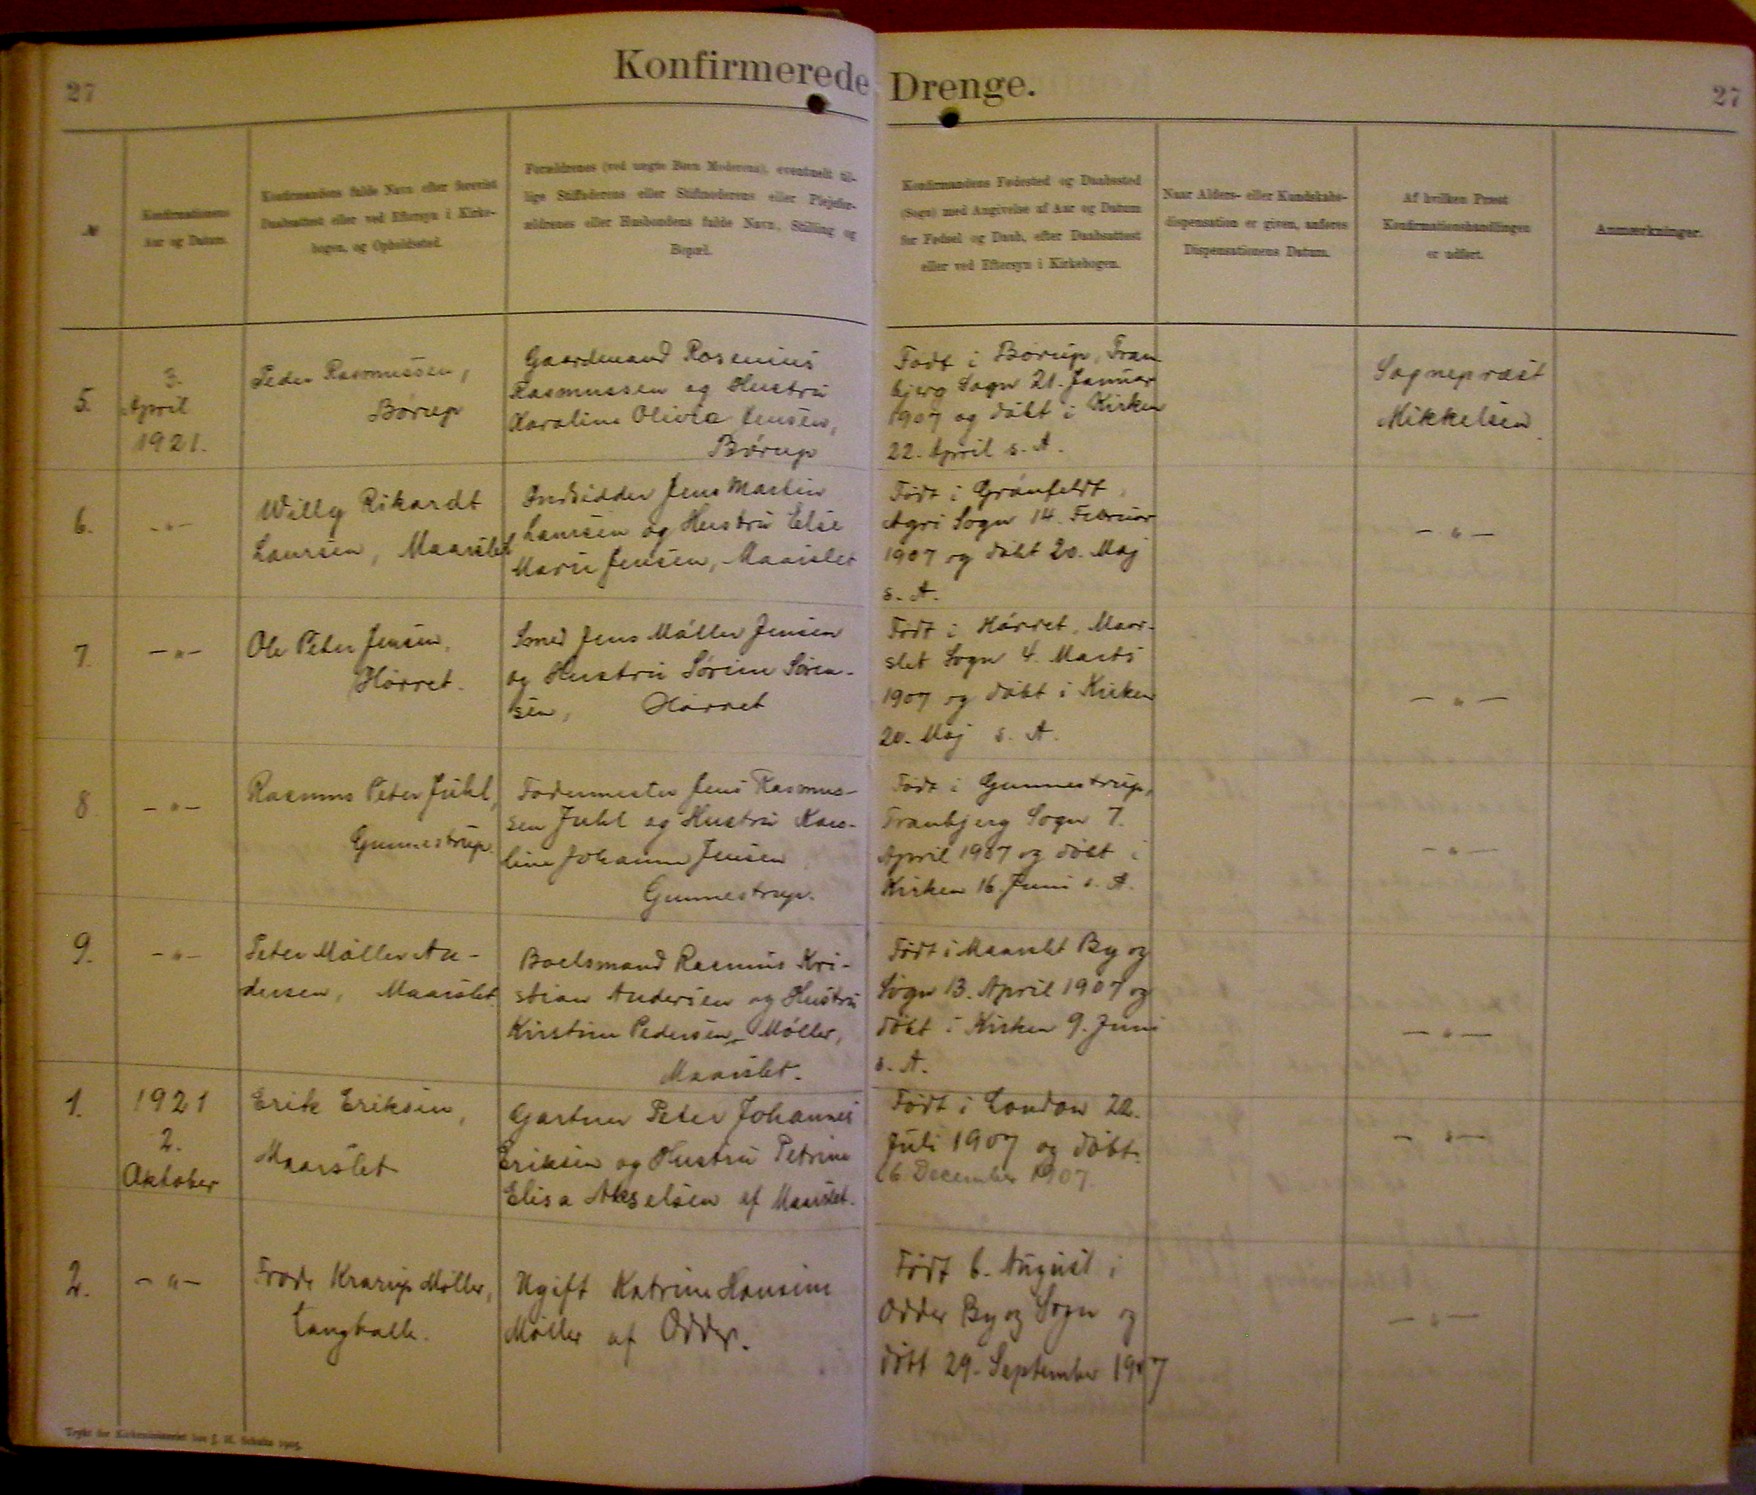 27
Konfirmerede Drenge.
27
№
Konfirmationens
Aar og Datum.
Konfirmandens fulde Navn efter forevist
Daabsattest eller ved Eftersyn i Kirke-
bogen, og Opholdssted.
Forældrenes (ved uægte Børn Moderens), eventuelt til-
lige Stiffaderens eller Stifmoderens eller Plejefor-
ældrenes eller Husbondens fulde Navn, Stilling og
Bopæl.
Konfirmandens Fødested og Daabssted
(Sogn) med Angivelse af Aar og Datum
for Fødsel og Daab, efter Daabsattest
eller ved Eftersyn i Kirkebogen.
Naar Alders- eller Kundskabs-
dispensation er given, anføres
Dispensationens Datum.
Af hvilken Præst
Konfirmationshandlingen
er udført.
Anmærkninger.
5.
3.
April
1921.
Peder Rasmussen,
Børup
Gaardmand Rosenius
Rasmussen og Hustru
Karoline Olivia Jensen,
Børup
Født i Børup, Tran
bjerg Sogn 21. Januar
1907 og døbt i Kirken
22. April s. A.
Sognepræst
Mikkelsen
6.
-"-
Willy Rikardt
Laursen, Maarslet
Indsidder Jens Martin
Laursen og Hustru Else
Marie Jensen, Maarslet
Født i Grønfeldt,
Agri Sogn 14. Februar
1907 og døbt 20. Maj
s. A.
-"-
7.
-"-
Ole Peter Jensen,
Hørret.
Smed Jens Møller Jensen
og Hustru Sørine Søren-
sen, Hørret
Født i Hørret, Maar-
slet Sogn 4. Marts
1907 og døbt i Kirken
20. Maj s. A.
-"-
8
-"-
Rasmus Peter Juhl,
Gunnestrup.
Fodermester Jens Rasmus-
sen Juhl og Hustru Karo-
line Johanne Jensen,
Gunnestrup.
Født i Gunnestrup,
Tranbjerg Sogn 7.
April 1907 og døbt i
Kirken 16. Juni s. A.
-"-
9.
-"-
Peter Møller An-
dersen, Maarslet.
Boelsmand Rasmus Kri-
stian Andersen og Hustru
Kirstine Pedersen Møller,
Maarslet.
Født i Maarslet By og
Sogn 13. April 1907 og
døbt i Kirken 9. Juni
s. A.
-"-
1.
1921
2.
Oktober
Erik Eriksen,
Maarslet
Gartner Peter Johannes
Eriksen og Hustru Petrine
Elisa Akselsen af Maarslet.
Født i London 22.
Juli 1907 og døbt
6 December 1907.
-"-
2.
-"-
Frode Krarup Møller,
Langballe.
Ugift Katrine Hansine
Møller af Odder.
Født 6. August i
Odder By og Sogn og
døbt 29. September 1907
-"-
Trykt for Kirkeministeriet hos J. H. Schultz 1905.